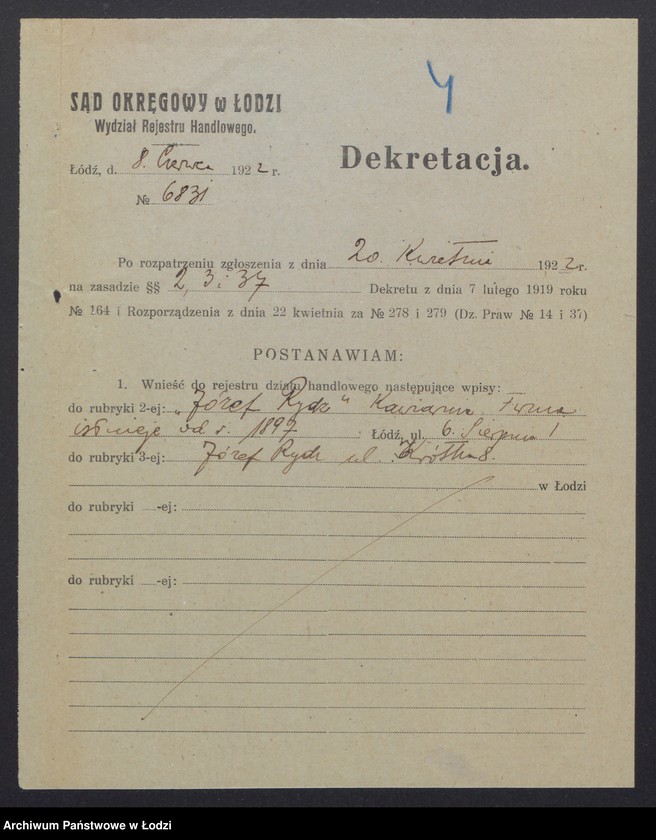 4
SĄD OKRĘGOWY w ŁODZI
Wydział Rejestru Handlowego.
Łódź, d. 8. Czerwca 1922 r.
№ 6831
Dekretacja.
Po rozpatrzeniu zgłoszenia z dnia 20. Kwietnia 1922 r.
na zasadzie §§ 2, 3 i 37 Dekretu z dnia 7 lutego 1919 roku
№ 164 i Rozporządzenia z dnia 22 kwietnia za № 278 i 279 (Dz. Praw № 14 i 37)
POSTANAWIAM:
1. Wnieść do rejestru działu handlowego następujące wpisy:
do rubryki 2-ej: „Józef Rydz" Kawiarnia. Firma
istnieje od r. 1897 Łódź, ul. 6. Sierpnia 1
do rubryki 3-ej: Józef Rydz ul. Krótka 8.
w Łodzi
do rubryki -ej:
do rubryki -ej:
Archiwum Państwowe w Łodzi